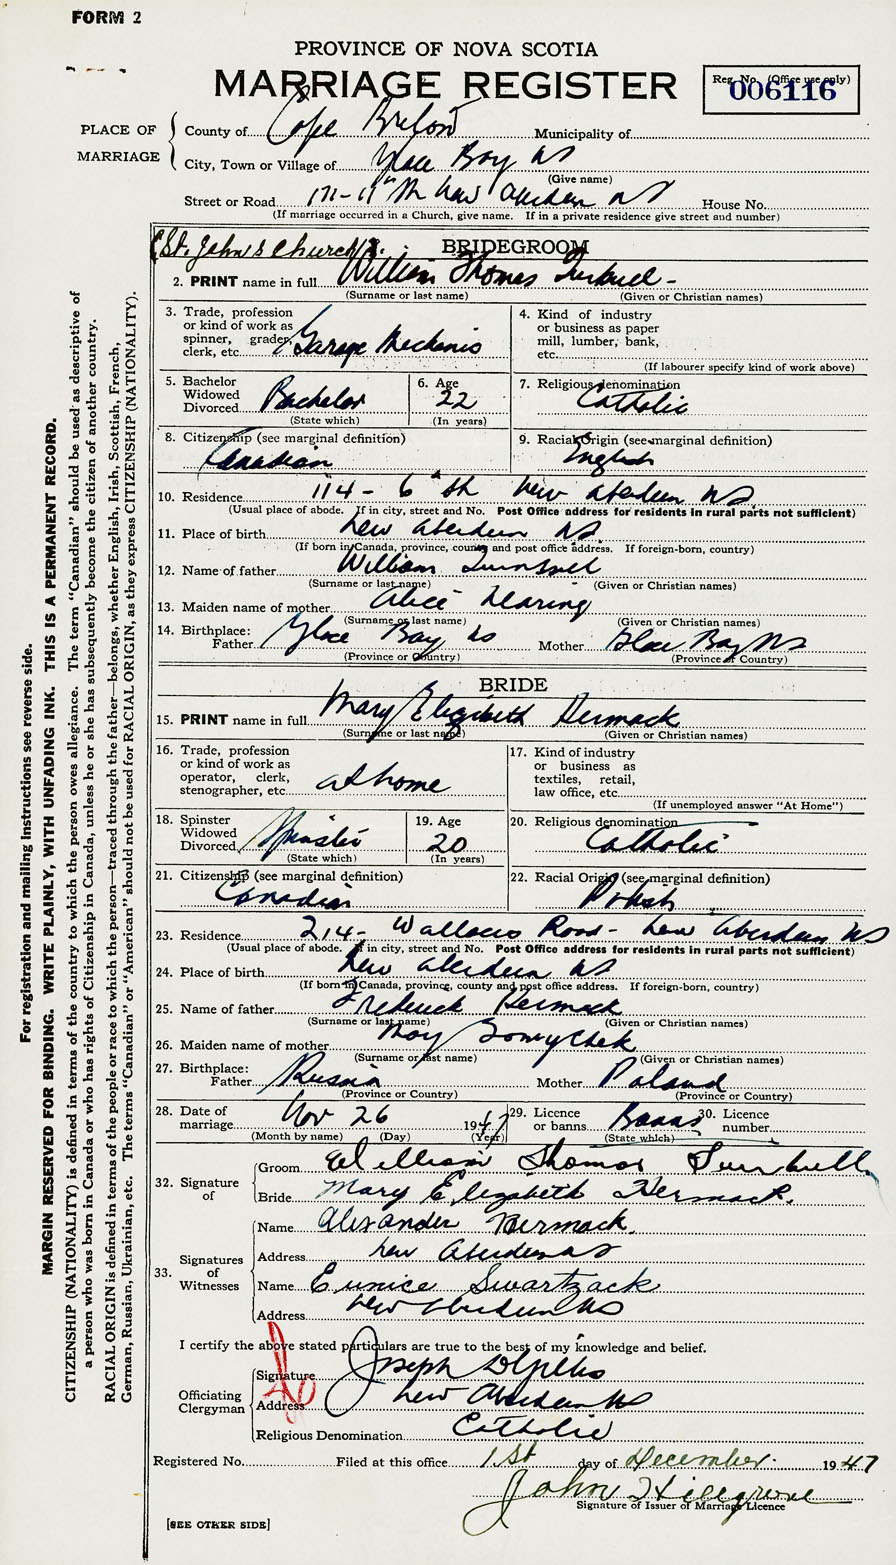 FORM 2
PROVINCE OF NOVA SCOTIA
MARRIAGE REGISTER
Reg. No. (Office use only)
006116
PLACE OF MARRIAGE
County of Cape Breton Municipality of
City, Town or Village of Glace Bay NS
(Give name)
Street or Road 171-11th New Aberdeen NS House No.
(If marriage occurred in a Church, give name. If in a private residence give street and number)
(St. John's Church)
BRIDEGROOM
2. PRINT name in full William Thomas
(Surname or last name) (Given or Christian names)
3. Trade, profession or kind of work as spinner, grader, clerk, etc. Garage Mechanic
4. Kind of industry or business as paper mill, lumber, bank, etc.
(If labourer specify kind of work above)
5. Bachelor Widowed Divorced Bachelor
(State which)
6. Age 22
(In years)
7. Religious denomination Catholic
8. Citizenship (see marginal definition) Canadian
9. Racial Origin (see marginal definition) English
10. Residence 114 - 6th New Aberdeen NS
(Usual place of abode. If in city, street and No. Post Office address for residents in rural parts not sufficient)
11. Place of birth New Aberdeen NS
(If born in Canada, province, county and post office address. If foreign-born, country)
12. Name of father William
(Surname or last name) (Given or Christian names)
13. Maiden name of mother Alice
(Surname or last name) (Given or Christian names)
14. Birthplace: Father Glace Bay NS Mother Glace Bay NS
(Province or Country) (Province or Country)
BRIDE
15. PRINT name in full Mary Elizabeth Hermack
(Surname or last name) (Given or Christian names)
16. Trade, profession or kind of work as operator, clerk, stenographer, etc. at home
17. Kind of industry or business as textiles, retail, law office, etc.
(If unemployed answer "At Home")
18. Spinster Widowed Divorced Spinster
(State which)
19. Age 20
(In years)
20. Religious denomination Catholic
21. Citizenship (see marginal definition) Canadian
22. Racial Origin (see marginal definition) Polish
23. Residence 214 - Wallaces Road - New Aberdeen NS
(Usual place of abode. If in city, street and No. Post Office address for residents in rural parts not sufficient)
24. Place of birth New Aberdeen NS
(If born in Canada, province, county and post office address. If foreign-born, country)
25. Name of father Frederick Hermack
(Surname or last name) (Given or Christian names)
26. Maiden name of mother
(Surname or last name) (Given or Christian names)
27. Birthplace: Father Russia Mother Poland
(Province or Country) (Province or Country)
28. Date of marriage Nov 26 1947
(Month by name) (Day) (Year)
29. Licence or banns Banns
(State which)
30. Licence number
32. Signature of
Groom William Thomas
Bride Mary Elizabeth Hermack.
33. Signatures of Witnesses
Name Alexander Hermack.
Address New Aberdeen NS
Name Eunice Swartzack
Address New Aberdeen NS
I certify the above stated particulars are true to the best of my knowledge and belief.
Officiating Clergyman
Signature Joseph
Address New Aberdeen NS
Religious Denomination Catholic
Registered No. Filed at this office 1st day of December 1947
John
Signature of Issuer of Marriage Licence
[SEE OTHER SIDE]
For registration and mailing instructions see reverse side.
MARGIN RESERVED FOR BINDING. WRITE PLAINLY, WITH UNFADING INK. THIS IS A PERMANENT RECORD.
CITIZENSHIP (NATIONALITY) is defined in terms of the country to which the person owes allegiance. The term "Canadian" should be used as descriptive of
a person who was born in Canada or who has rights of Citizenship in Canada, unless he or she has subsequently become the citizen of another country.
RACIAL ORIGIN is defined in terms of the people or race to which the person—traced through the father—belongs, whether English, Irish, Scottish, French,
German, Russian, Ukrainian, etc. The terms "Canadian" or "American" should not be used for RACIAL ORIGIN, as they express CITIZENSHIP (NATIONALITY).